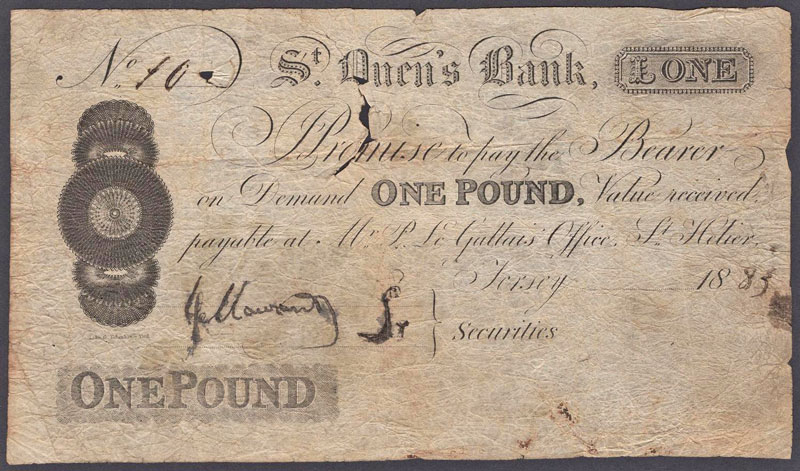 No. 10
St. Ouen's Bank, £ ONE
I Promise to pay the Bearer
on Demand ONE POUND, Value received,
payable at Mr. P. Le Gallais' Office, St. Helier,
Jersey 18 83
Securities
ONE POUND